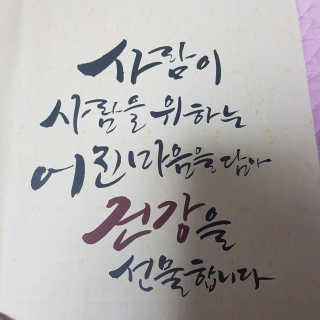 사람이
사람을 위하는
어진 마음을 담아
건강을
선물합니다